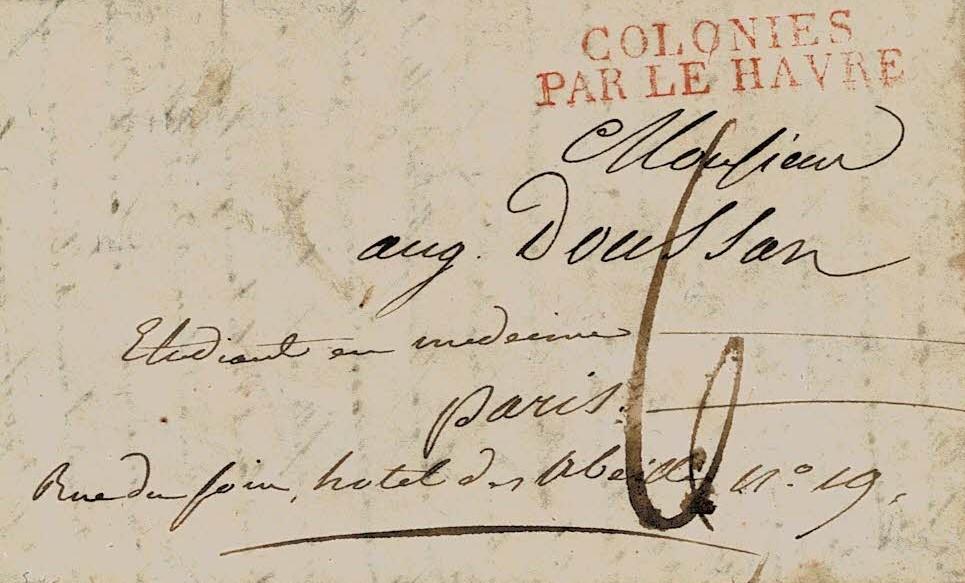 COLONIES
PAR LE HAVRE
Monsieur
aug. Doussan
Etudiant en medecine
paris.
Rue du foin, hotel des Abeilles n.o 19.
6